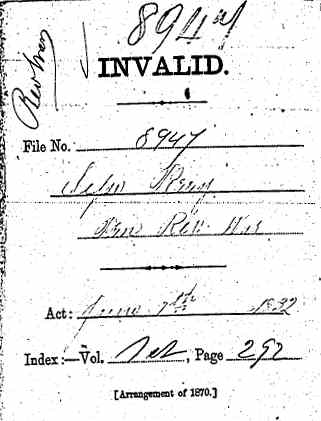 8947
Rev War
INVALID.
File No. 8947
Rev. War
Act: June 7th 1832
Index:—Vol. 1st, Page 292
[Arrangement of 1870.]